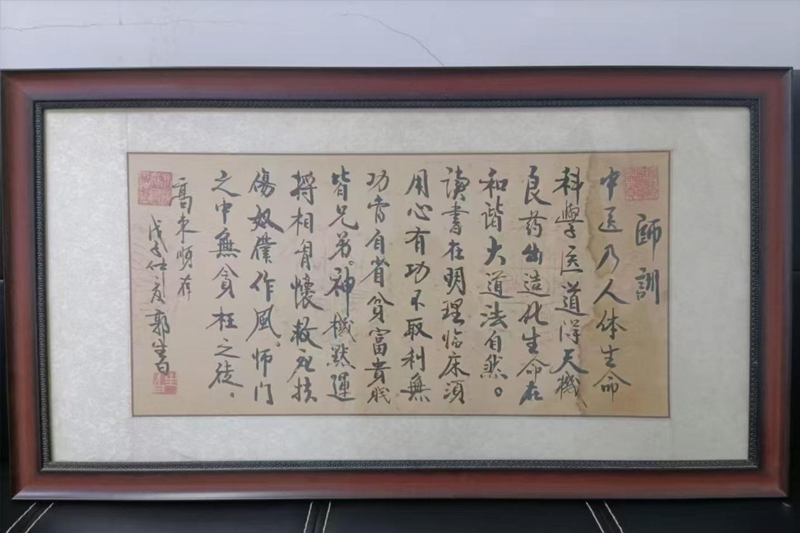 師訓
中医乃人体生命
科學医道得天機
良药出造化生命在
和谐大道法自然。
读書在明理临床须
用心有功不取利無
功常自省贫富貴贱
皆兄弟。神機默運
将相胸懷救死扶
傷奴僕作風。师门
之中無貪枉之徒。
高来順存
戊子仲夏郭生